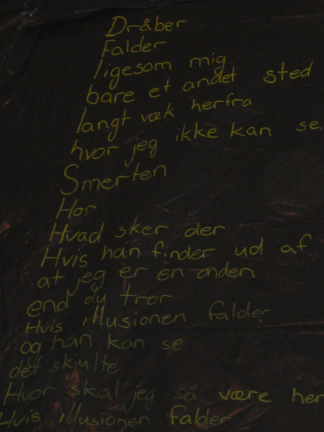 Dråber
Falder
ligesom mig
bare et andet sted
langt væk herfra
hvor jeg ikke kan se
Smerten
Hor
Hvad sker der
Hvis han finder ud af
at jeg er en anden
end du tror
Hvis illusionen falder
og han kan se
det skjulte
Hvor skal jeg så være her
Hvis illusionen falder